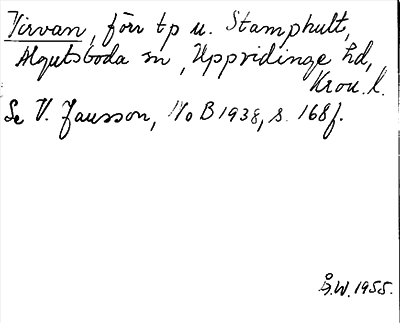 Virvan, förr tp u. Stamphult,
Algutsboda sn, Uppvidinge hd,
Kron. l.
Se V. Jansson, NoB 1938, s. 168f.
G.W. 1955.